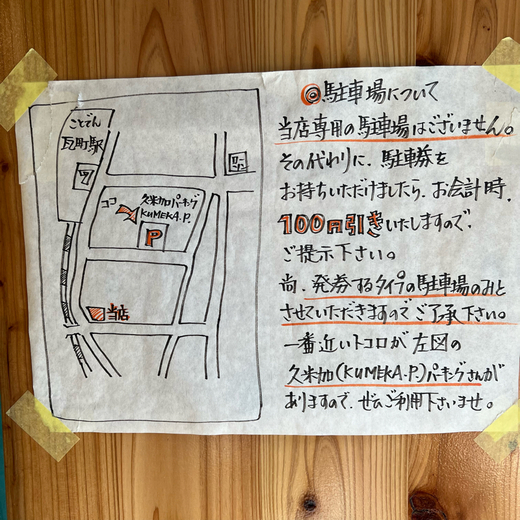 ことでん
瓦町駅
ココ
久米加パーキング
KUMEKA.P.
P
当店
◎駐車場について
当店専用の駐車場はございません。
その代わりに、駐車券を
お持ちいただけましたら、お会計時、
100円引きいたしますので、
ご提示下さい。
尚、発券するタイプの駐車場のみと
させていただきますのでご了承下さい。
一番近いトコロが左図の
久米加(KUMEKA.P.)パーキングさんが
ありますので、ぜひご利用下さいませ。